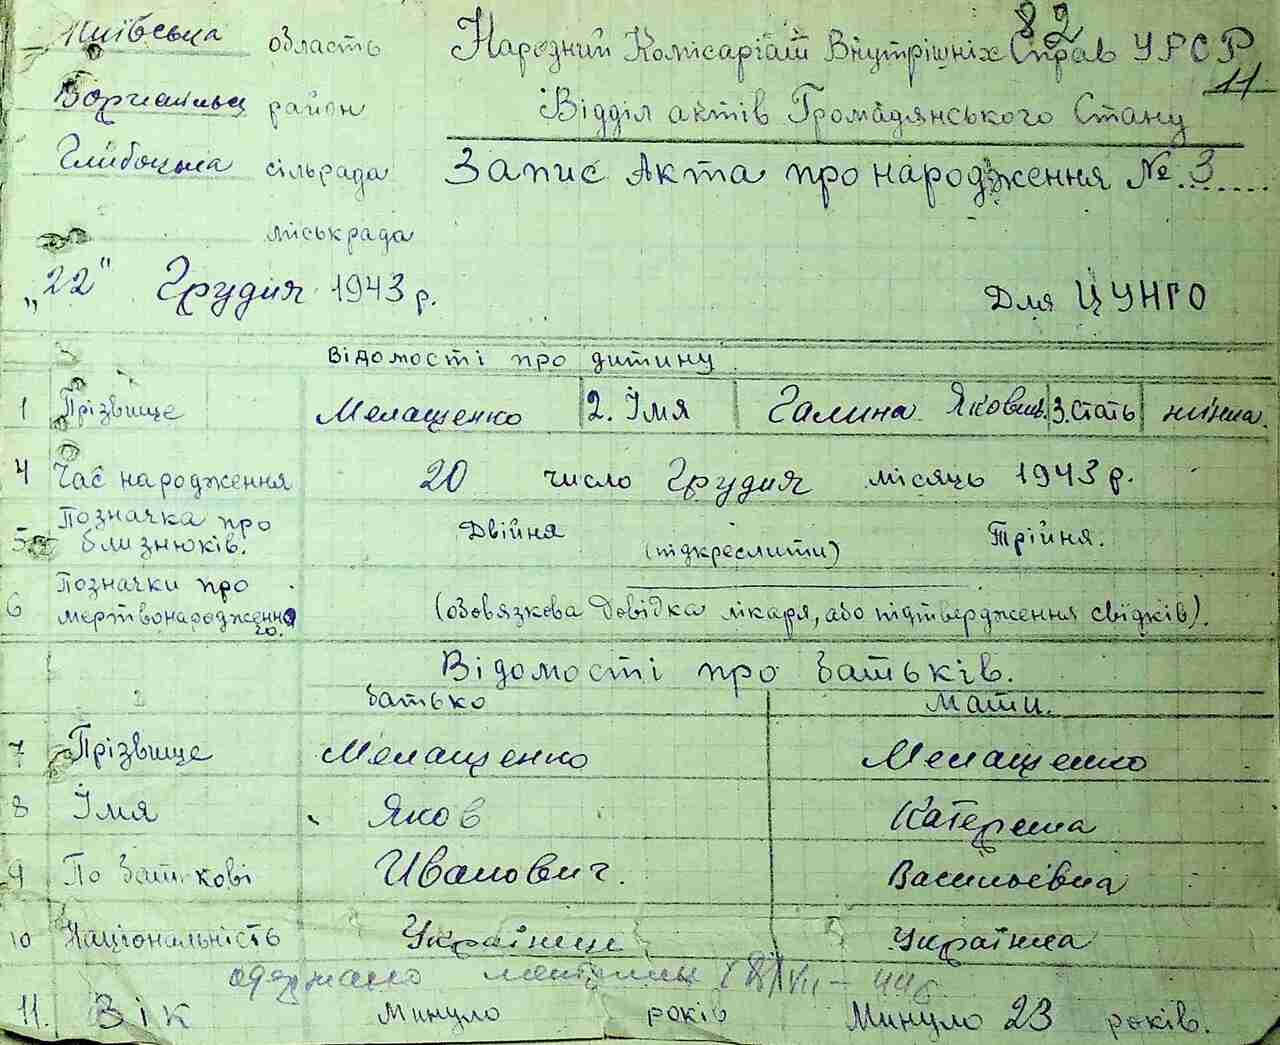 82
Київська область Народний Комісаріат Внутрішніх Справ УРСР
11
район Відділ актів Громадянського Стану
Глибоцька сільрада Запис Акта про народження № 3
міськрада
„22" Грудня 1943 р. Для ЦУНГО
Відомості про дитину
1 Прізвище Мелащенко 2. Імя Галина Яковл. 3. Стать жіноча.
4 Час народження 20 число Грудня місяць 1943 р.
5 Позначка про близнюків. Двійня (підкреслити) Трійня.
6 Позначки про мертвонароджено го. (обовязкова довідка лікаря, або підтвердження свідків).
Відомості про батьків.
батько Мати.
7 Прізвище Мелащенко Мелащенко
8 Імя Яков Катерина
9 По батькові Иванович. Васильевна
10 Національність Українець Українка
одержано
11. Вік Минуло років Минуло 23 років.